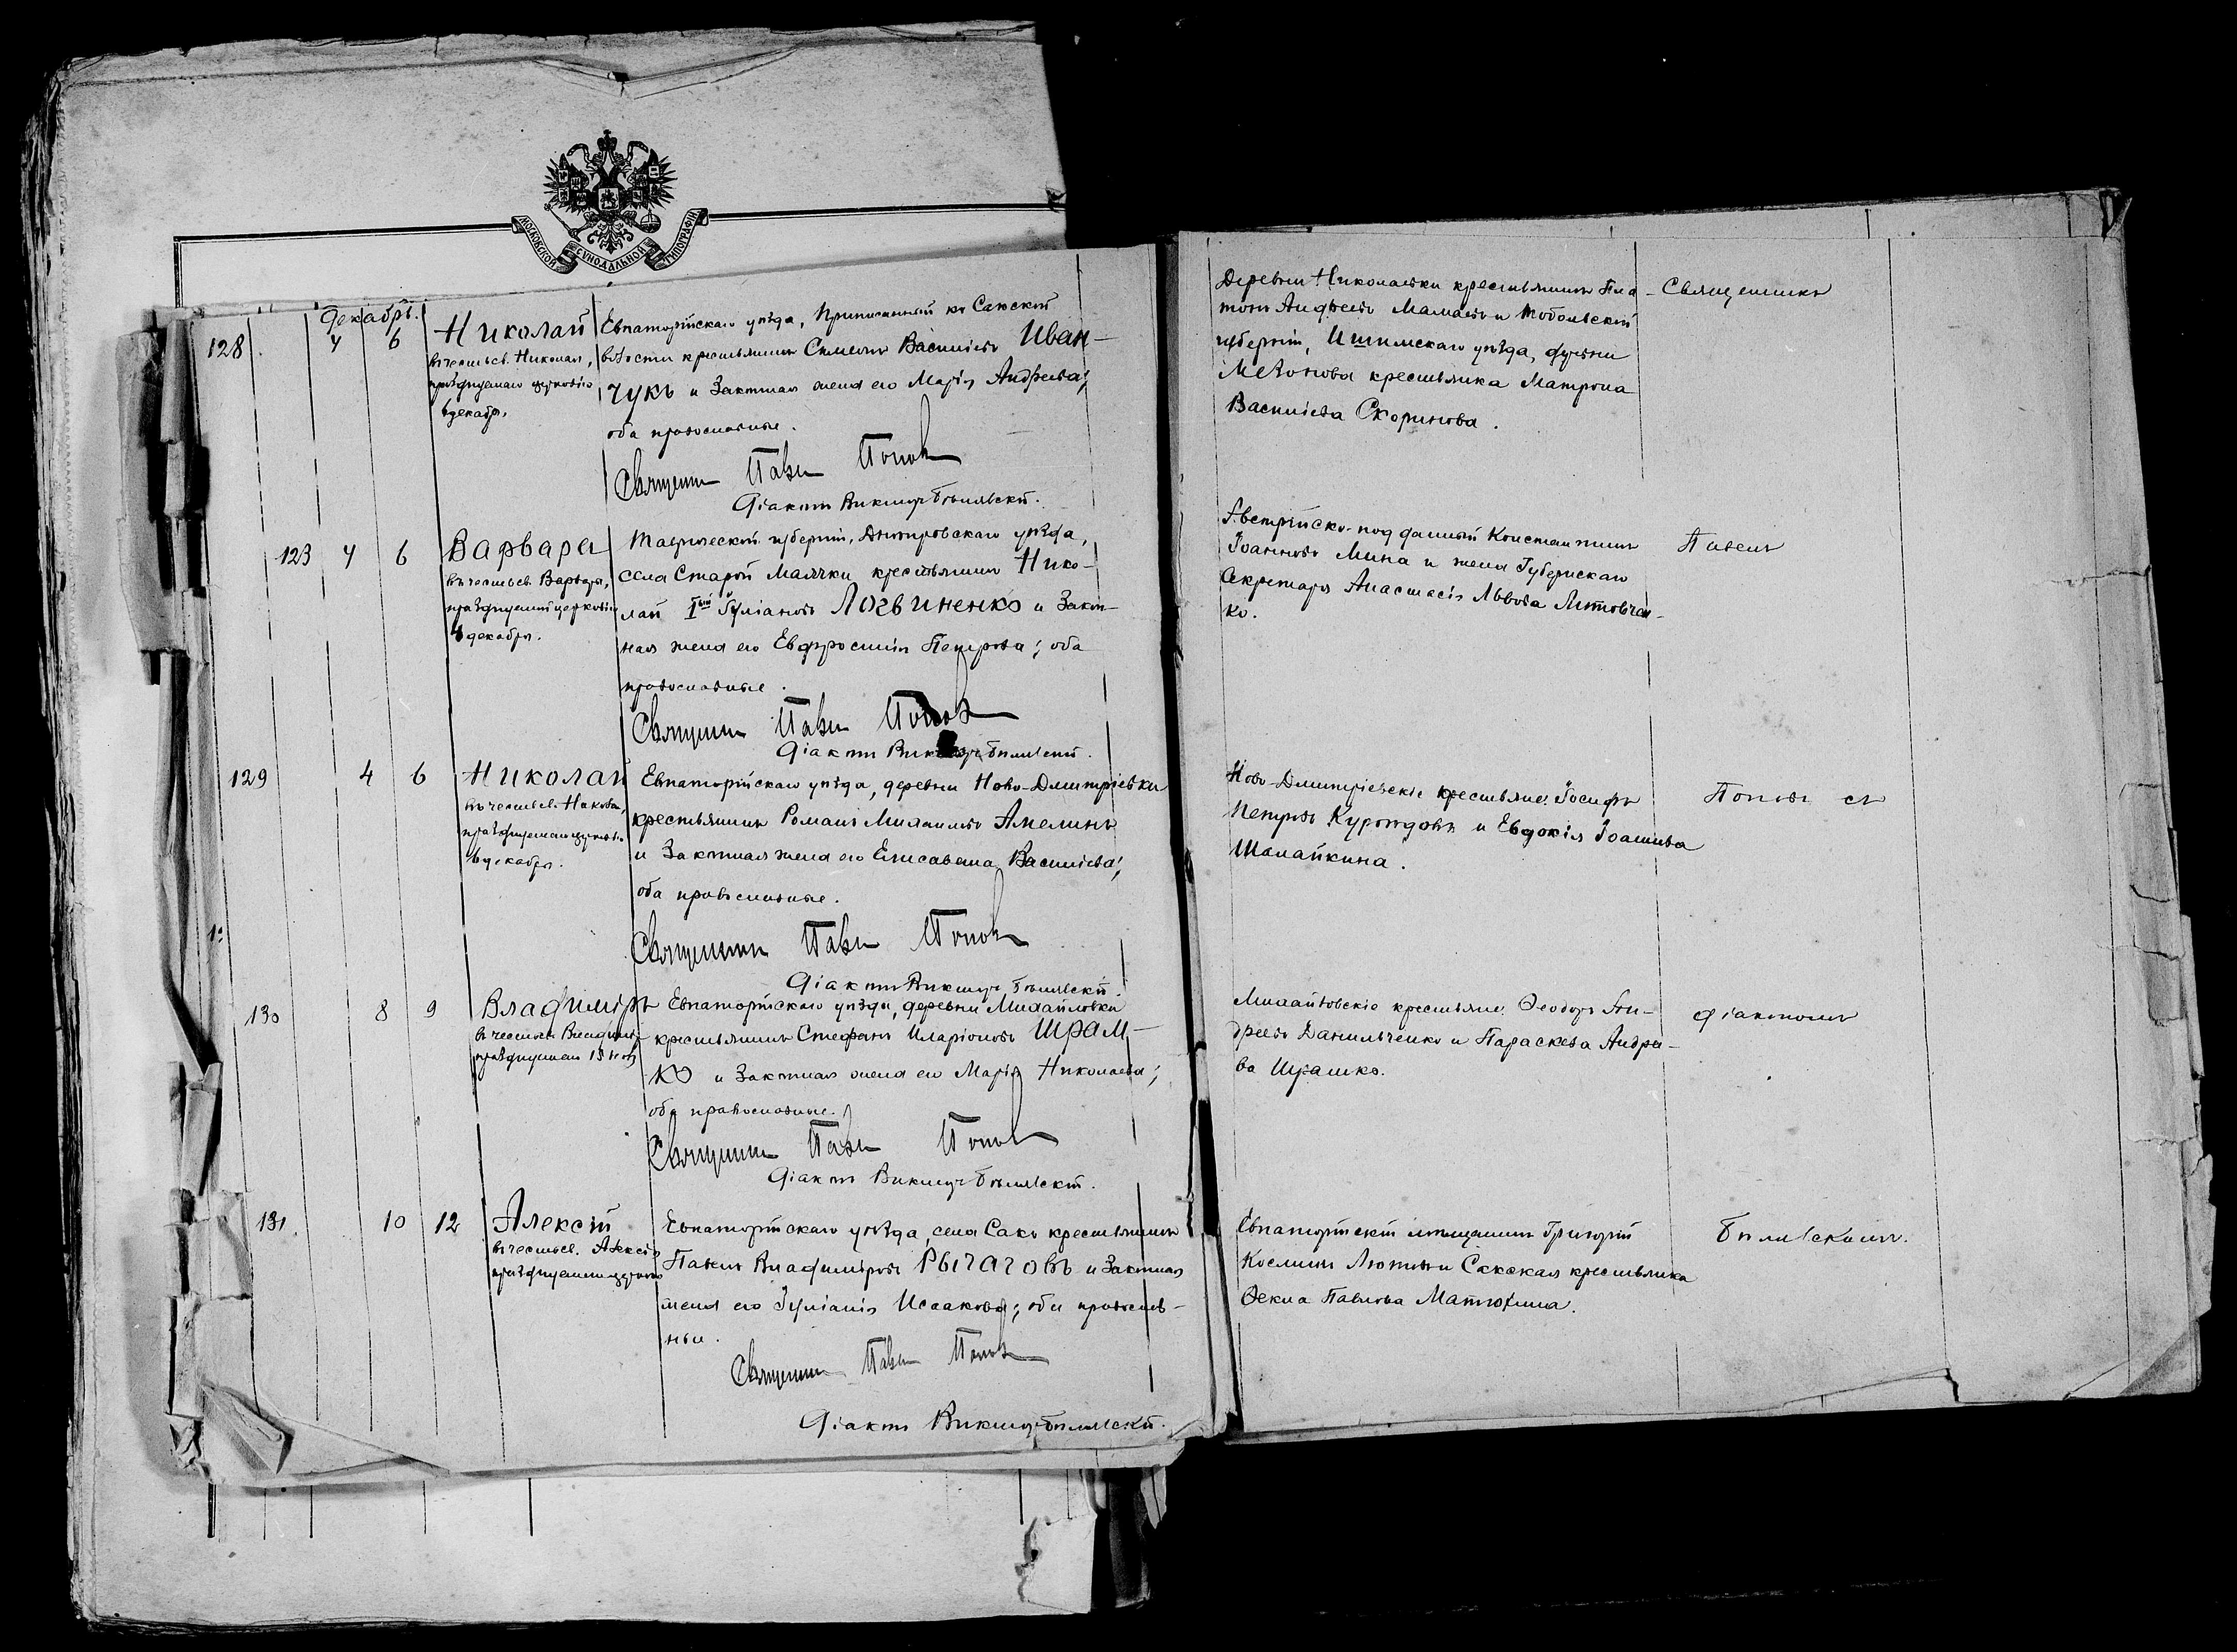 МОСКОВСКОЙ СѴНОДАЛЬНОЙ ТИПОГРАФІИ
Декабрь.
128. 4 6 Николай
въ честь св. Николая,
празднуемаго церковію
6 декабр.
Евпаторійскаго уѣзда, приписанный къ Сакской
волости крестьянинъ Симеонъ Васильевъ Иван-
чукъ и законная жена его Марія Андреева;
оба православные.
Священникъ Павелъ Поповъ
Діаконъ Викторъ Бѣлявскій.
Деревни Николаевки крестьянинъ Пла-
тонъ Андреевъ Мамаевъ и Тобольской
губерніи, Ишимскаго уѣзда, деревни
крестьянка Матрона
Васильева Скоринова.
Священникъ
123 4 6 Варвара
въ честь св. Варвары,
празднуемой церковію
4 декабря.
Таврической губерніи, Днѣпровскаго уѣзда,
села Старой Маячки крестьянинъ Нико-
лай Iый Іуліановъ Логвиненко и закон-
ная жена его Евфросинія Петрова; оба
православные.
Священникъ Павелъ Поповъ
Діаконъ Викторъ Бѣлявскій.
Австрійско-подданный Константинъ
Іоанновъ Мина и жена Губернскаго
Секретаря Анастасія Львова Литовчен-
ко.
Павелъ
129 4 6 Николай
въ честь св. Николая,
празднуемаго церковію
6 декабря.
Евпаторійскаго уѣзда, деревни Ново-Дмитріевки
крестьянинъ Романъ Михаиловъ Амелинъ
и законная жена его Елисавета Васильева;
оба православные.
Священникъ Павелъ Поповъ
Діаконъ Викторъ Бѣлявскій.
Ново-Дмитріевскіе крестьяне: Іосифъ
Петровъ и Евдокія Іоаннова
Шалайкина.
Поповъ съ
130 8 9 Владиміръ
въ честь св. Владиміра
празднуемаго 15 Іюля
Евпаторійскаго уѣзда, деревни Михайловки
крестьянинъ Стефанъ Иларіоновъ Шрам-
ко и законная жена его Марія Николаева;
оба православные.
Священникъ Павелъ Поповъ
Діаконъ Викторъ Бѣлявскій.
Михайловскіе крестьяне: Ѳеодоръ Ан-
дреевъ Данильченко и Параскева Андрее-
ва Шрамко.
діакономъ
131. 10 12 Алексій
въ честь св. Алексія
празднуемаго церковію
Евпаторійскаго уѣзда, села Саки крестьянинъ
Павелъ Владиміровъ Рычаговъ и законная
жена его Іуліанія Исаакова; оба православ-
ные.
Священникъ Павелъ Поповъ
Діаконъ Викторъ Бѣлявскій.
Евпаторійскій мѣщанинъ Григорій
Косминъ Лютый и Сакская крестьянка
Ѳекла Павлова Матюхина.
Бѣлявскимъ.